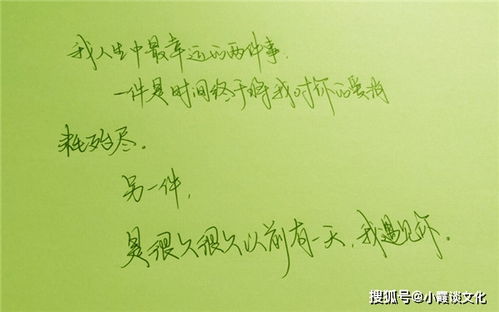 我人生中最幸运的两件事。
一件是时间终于将我对你的爱消
耗殆尽。
另一件,
是很久很久以前有一天,我遇见你。
搜狐号@小霞谈文化